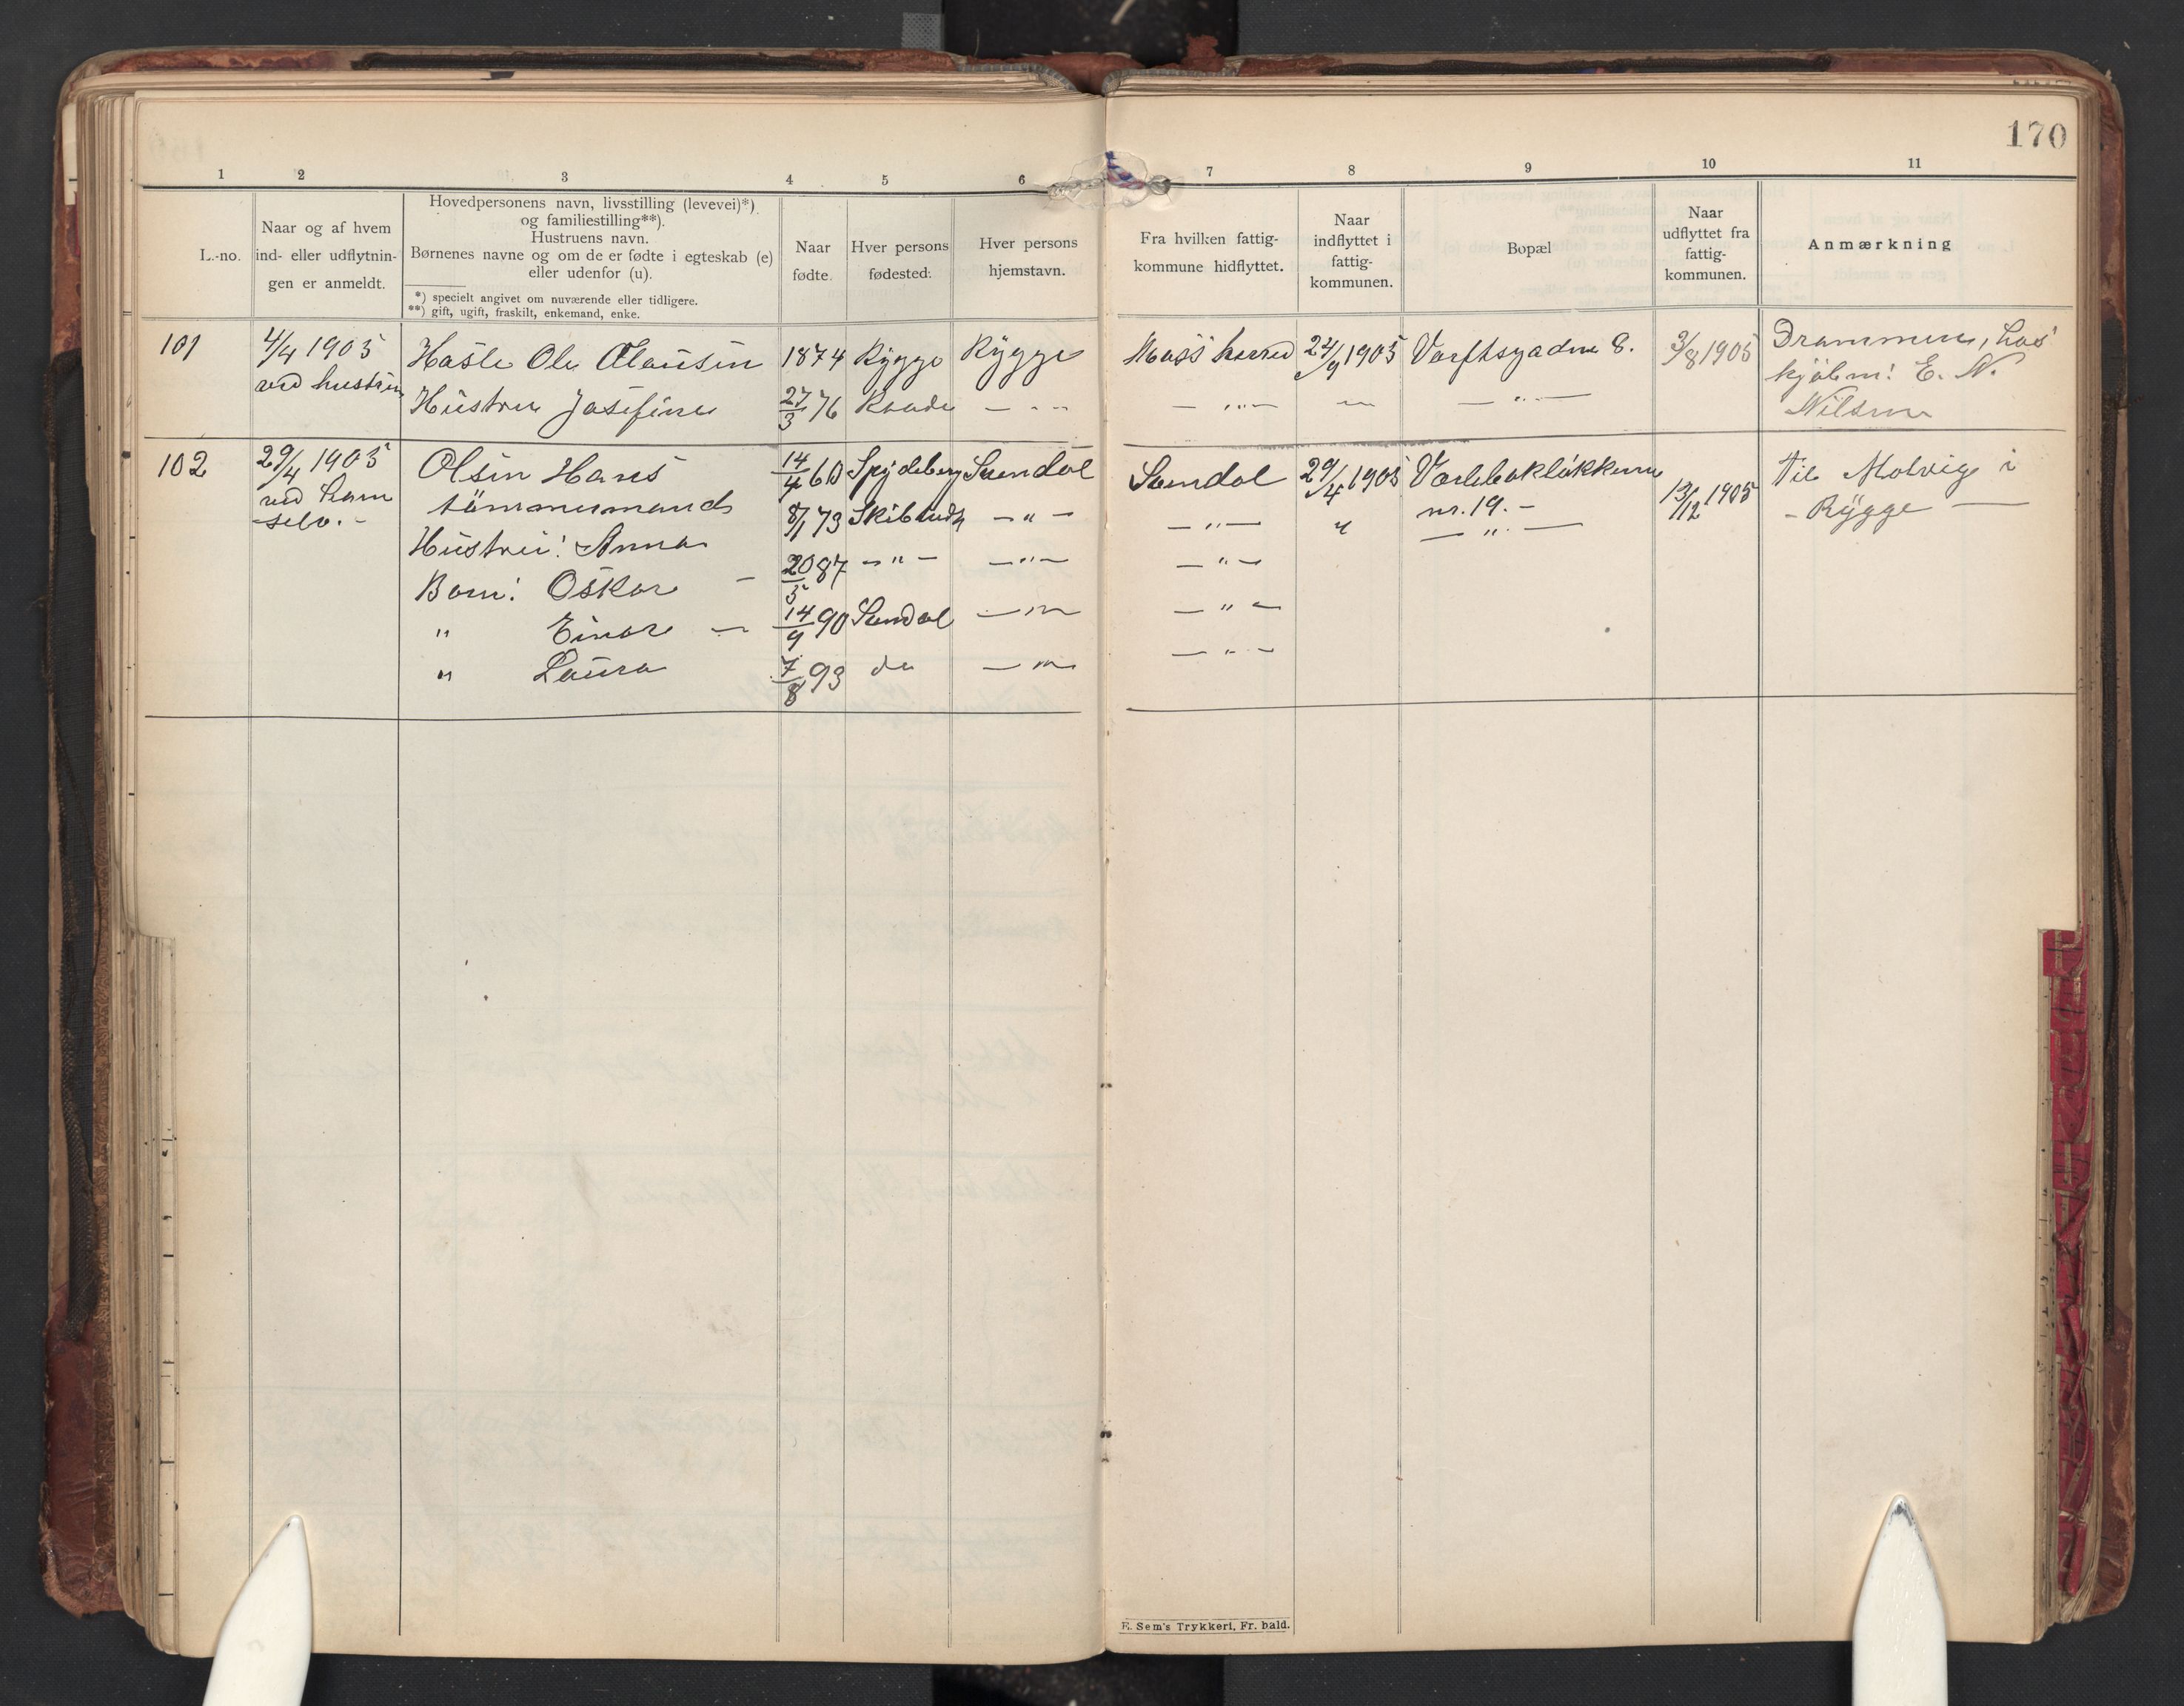 170
1 2 3 4 5 6 7 8 9 10 11
L.-no.
Naar og af hvem
ind- eller udflytnin-
gen er anmeldt.
Hovedpersonens navn, livsstilling (levevei)*)
og familiestilling**).
Hustruens navn.
Børnenes navne og om de er fødte i egteskab (e)
eller udenfor (u).
*) specielt angivet om nuværende eller tidligere.
**) gift, ugift, fraskilt, enkemand, enke.
Naar
fødte.
Hver persons
fødested.
Hver persons
hjemstavn.
Fra hvilken fattig-
kommune hidflyttet.
Naar
indflyttet i
fattig-
kommunen.
Bopæl
Naar
udflyttet fra
fattig-
kommunen.
Anmærkning
101 4/4 1905 Hasle Ole Olausen 1874 Rygge Rygge Moss 1905 Værftsgaden 8. 3/8 1905 Drammen, hos
ved hustruen Hustru Josefine 27/3 76 Raade — " — — " — " — " — kjøbm: E. N.
Nilsen
102 29/4 1905 Olsen Hans 14/4 60 Spydeberg Sandal Sandal 29/4 1905 Varlebakløkkerne 13/12 1905 til Molvig i
ved ham tömmermand nr. 19. - - Rygge —
selv. -
Hustru: Anna 8/1 73 Skibtvedt — " — — " — " — " —
Barn: Oskar - 20/5 87 — " — — " — — " —
" Einar — 14/9 90 Sandal — " — — " —
" Laura 7/8 93 do — " — — " —
E. Sem's Trykkeri, Fr. hald.